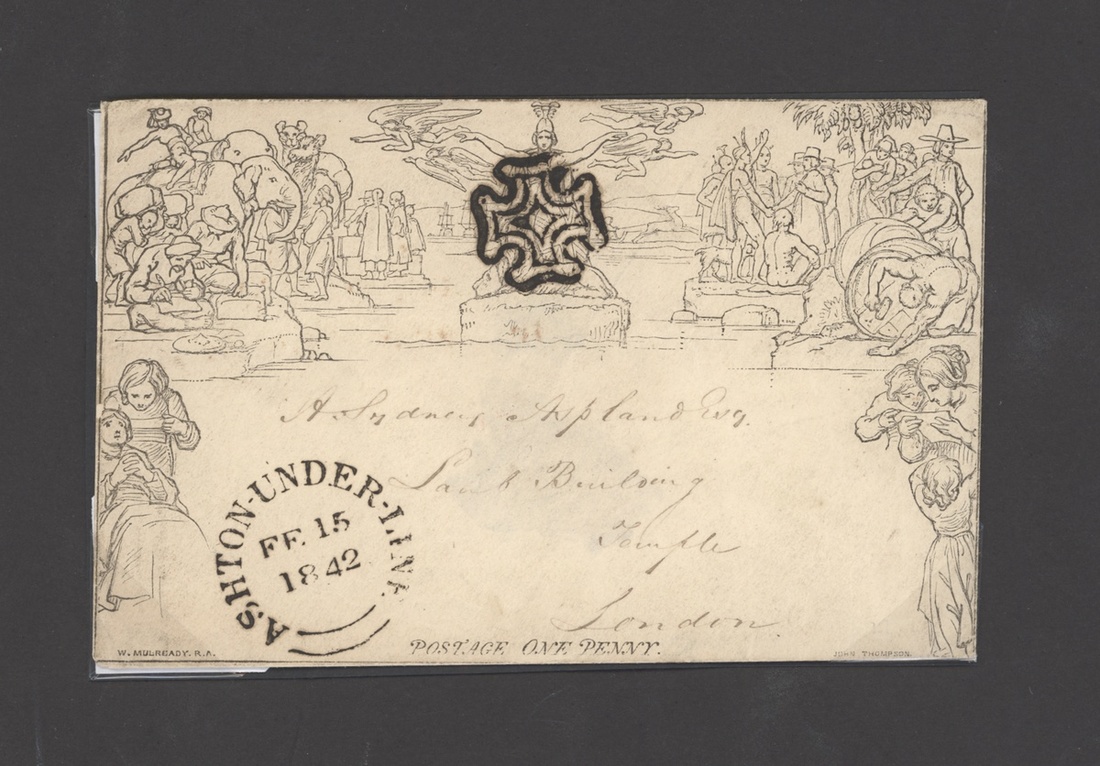 A Sydney Aspland Esq.
Lamb Building
Temple
London.
ASHTON-UNDER-LINE
FE 15
1842
POSTAGE ONE PENNY.
W. MULREADY. R.A.
JOHN THOMPSON.